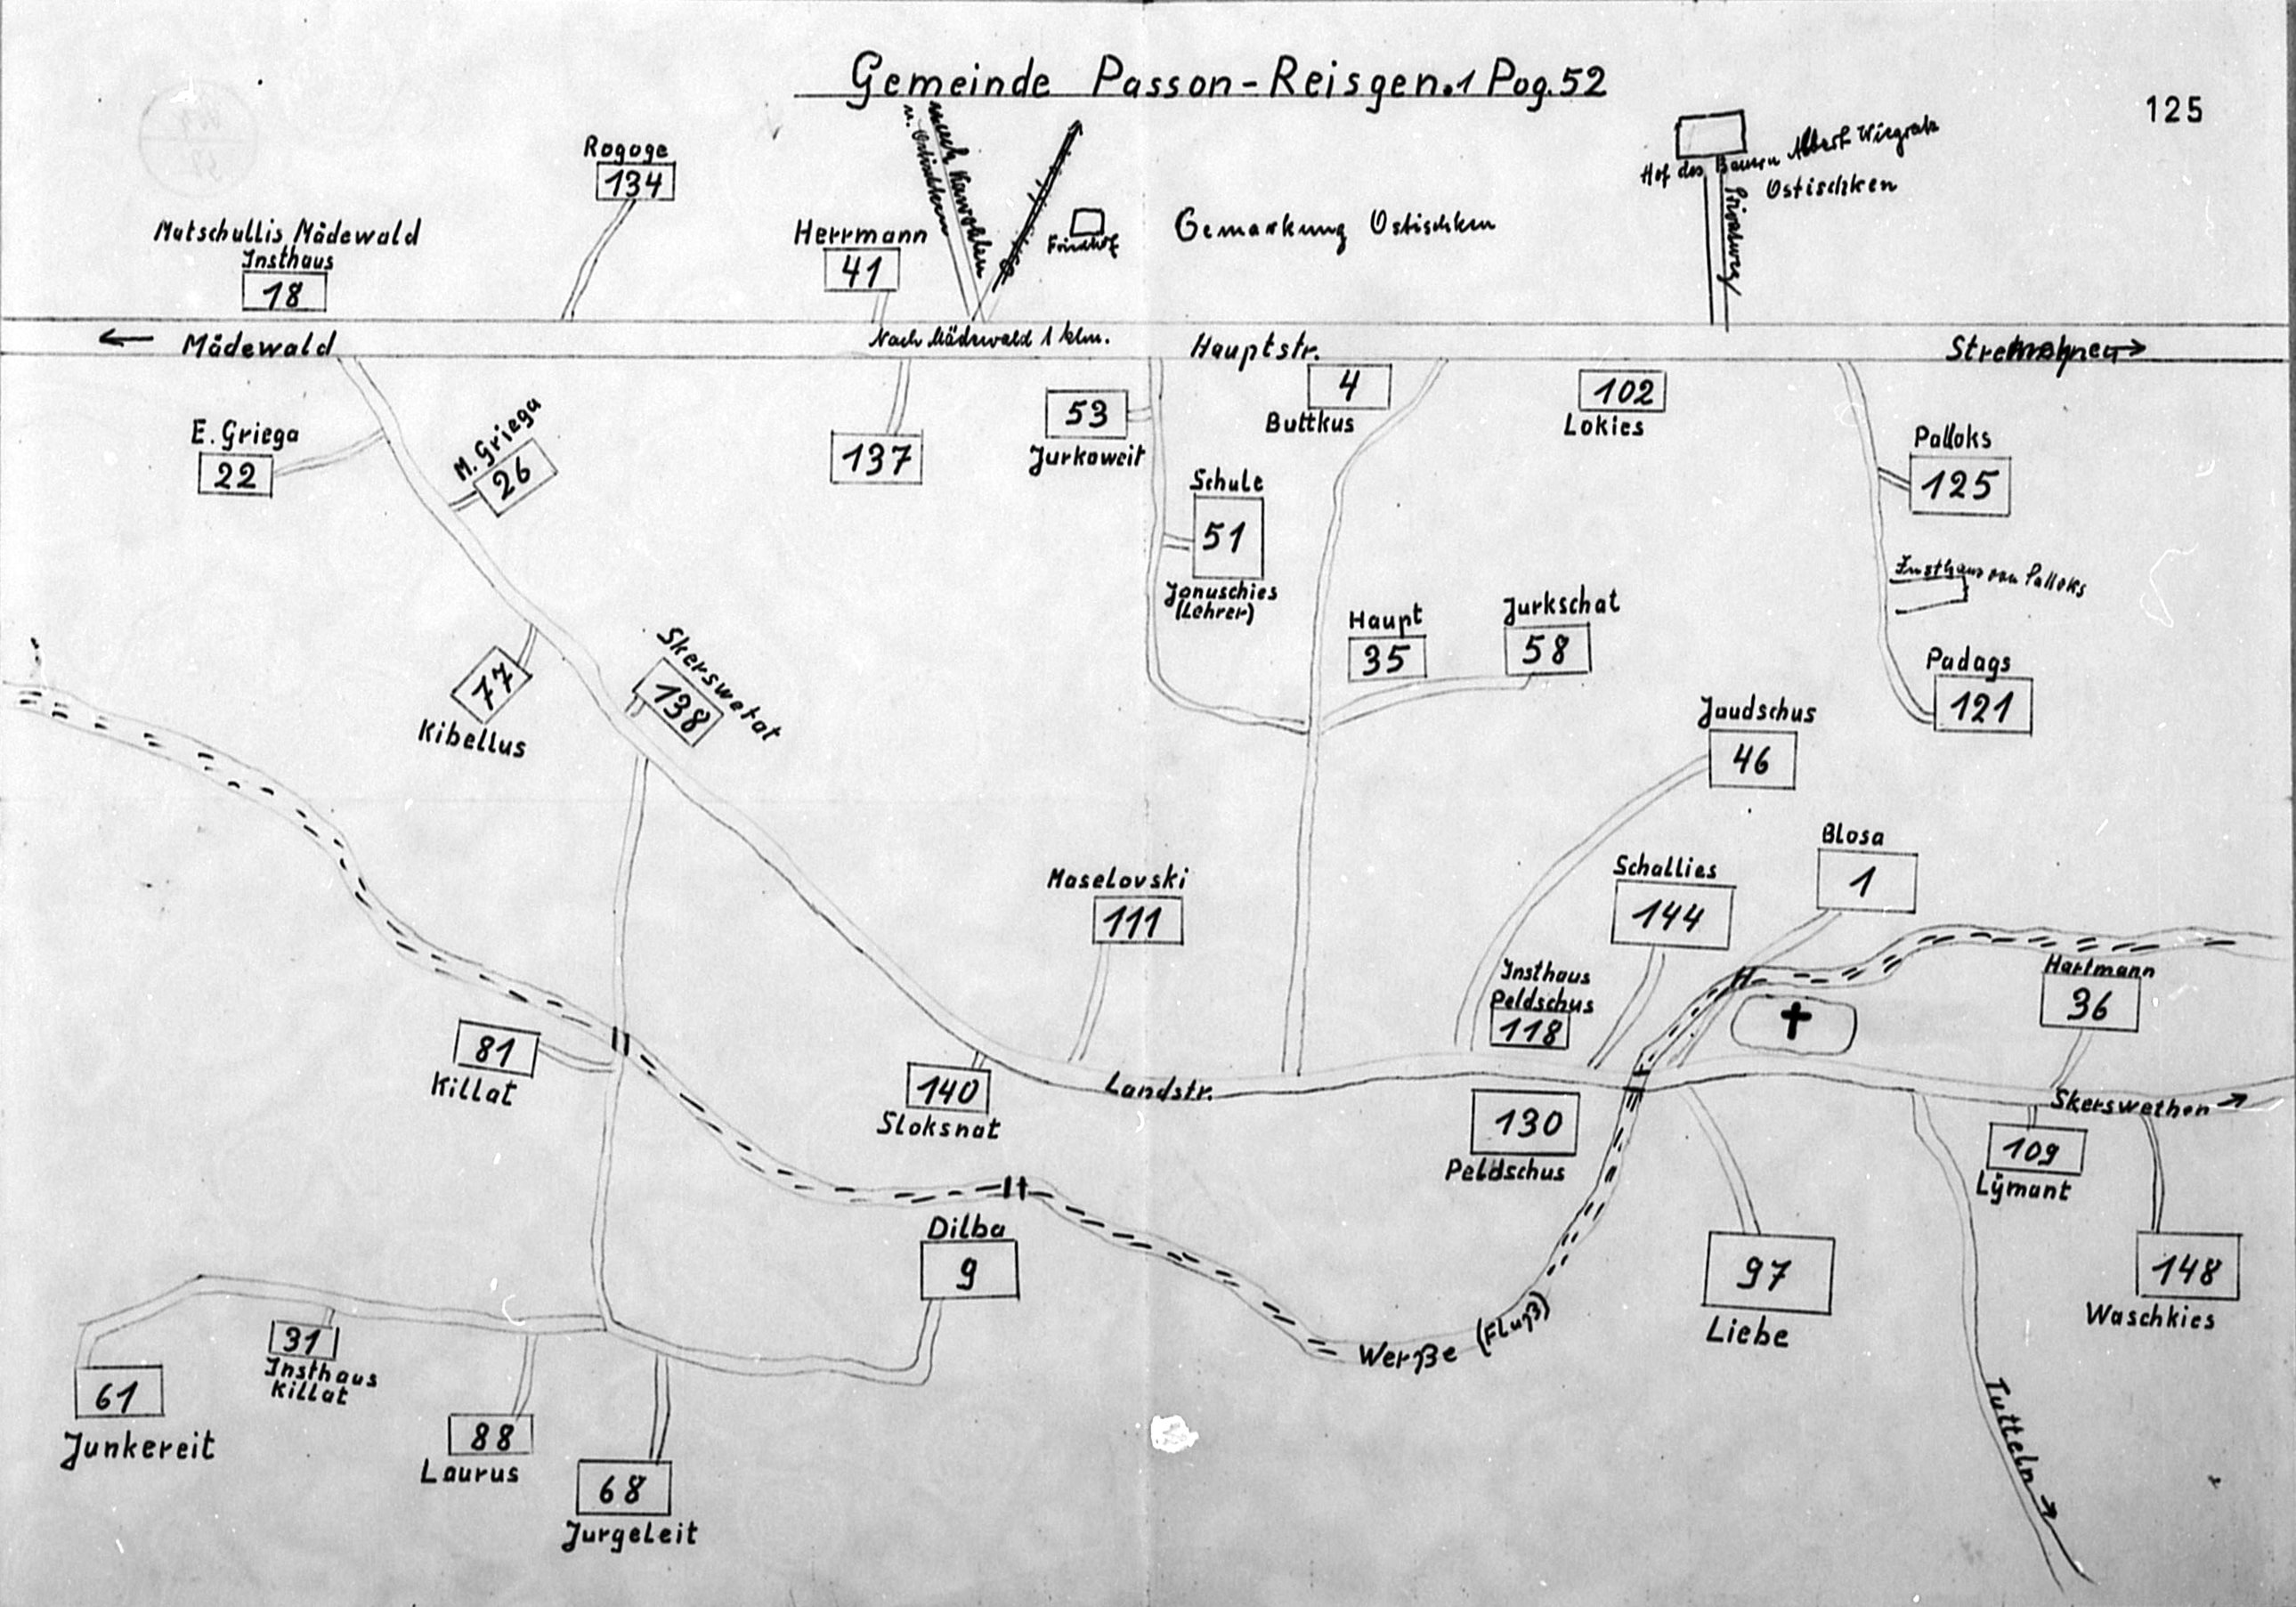 Gemeinde Passon-Reisgen.1 Pog.52
125
Rogoge
134
Matschullis, Mädewald
Insthaus
18
Herrmann
41
nach Kawohlen
u. Ostischken
Friedhof
Gemarkung Ostischken
Hof des Bauern Albert Wiegratz
Ostischken
Privatweg
← Mädewald
Nach Mädewald 1 klm.
Hauptstr.
E. Griega
22
M. Griega
26
137
53
Jurkoweit
4
Buttkus
102
Lokies
Palloks
125
Schule
51
Jonuschies
(Lehrer)
Insthaus von Palloks
Haupt
35
Jurkschat
58
Padags
121
77
Kibellus
Skerswetat
138
Jaudschus
46
Blosa
1
Schallies
144
Maselovski
111
Insthaus
Peldschus
118
Hartmann
36
81
Killat
140
Sloksnat
Landstr.
130
Peldschus
Skerswethen →
109
Lÿmant
Dilba
9
97
Liebe
148
Waschkies
31
Insthaus
Killat
61
Junkereit
Werße (Fluß)
88
Laurus
68
Jurgeleit
Tutteln →